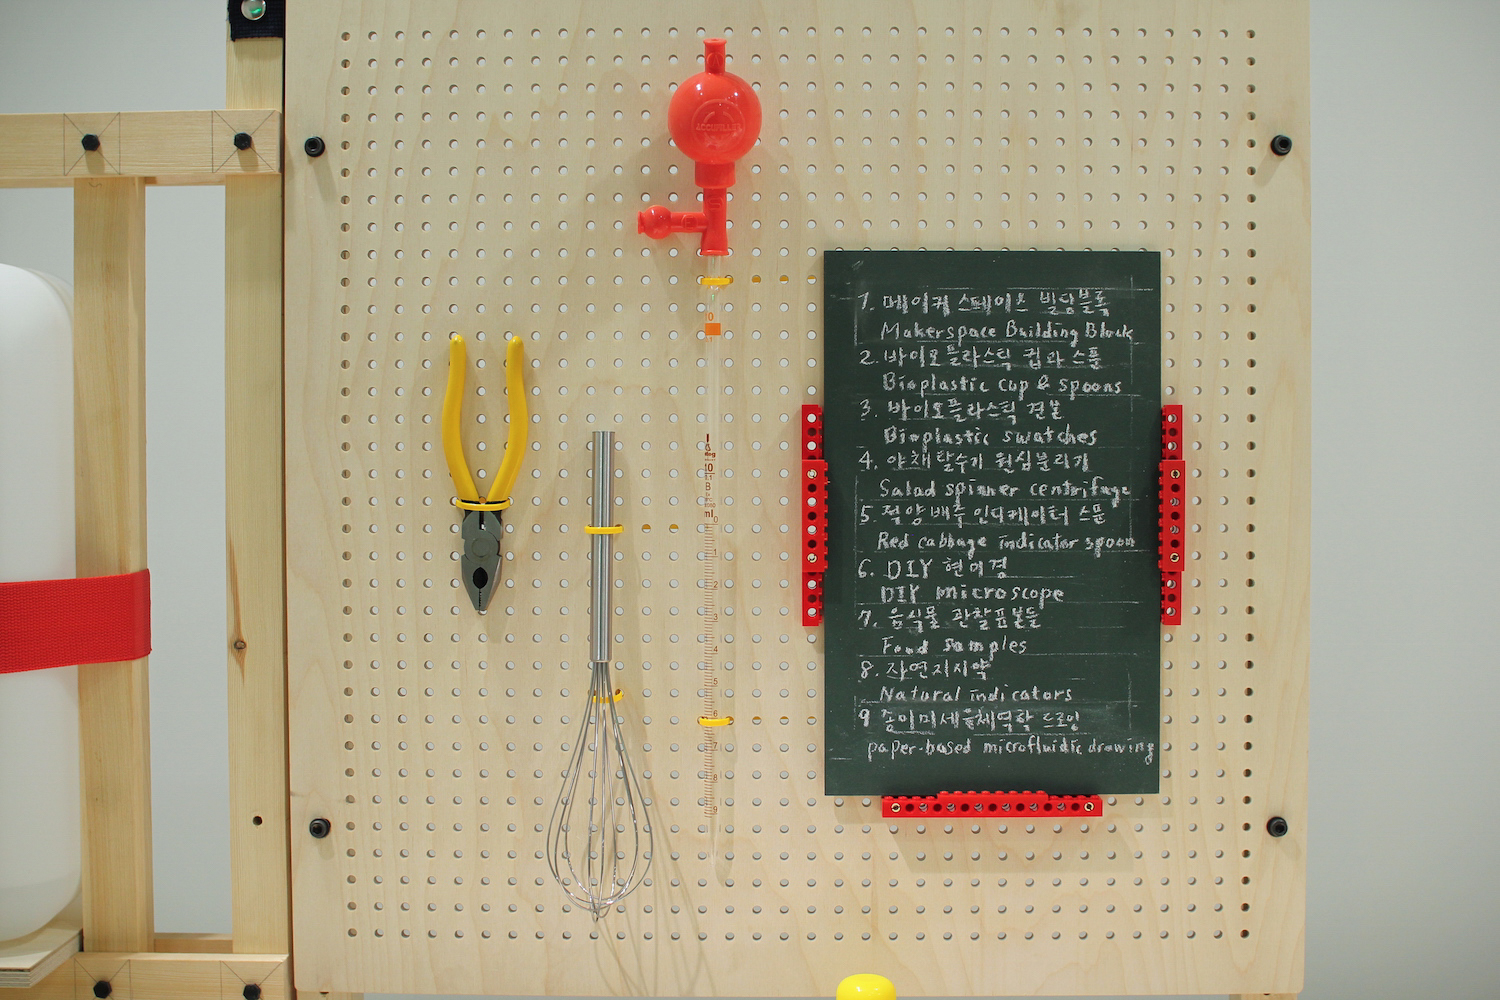 ACCUFILLER
0
10
ml
0
1
2
3
4
5
6
7
8
9
1. 메이커 스페이스 빌딩블록
Makerspace Building Block
2. 바이오플라스틱 컵과 스푼
Bioplastic cup & spoons
3. 바이오플라스틱 견본
Bioplastic swatches
4. 야채탈수기 원심분리기
Salad spinner centrifuge
5. 적양배추 인디케이터 스푼
Red cabbage indicator spoon
6. DIY 현미경
DIY microscope
7. 음식물 관찰표본들
Food samples
8. 자연지시약
Natural indicators
9 종이미세유체역학 드로잉
paper-based microfluidic drawing